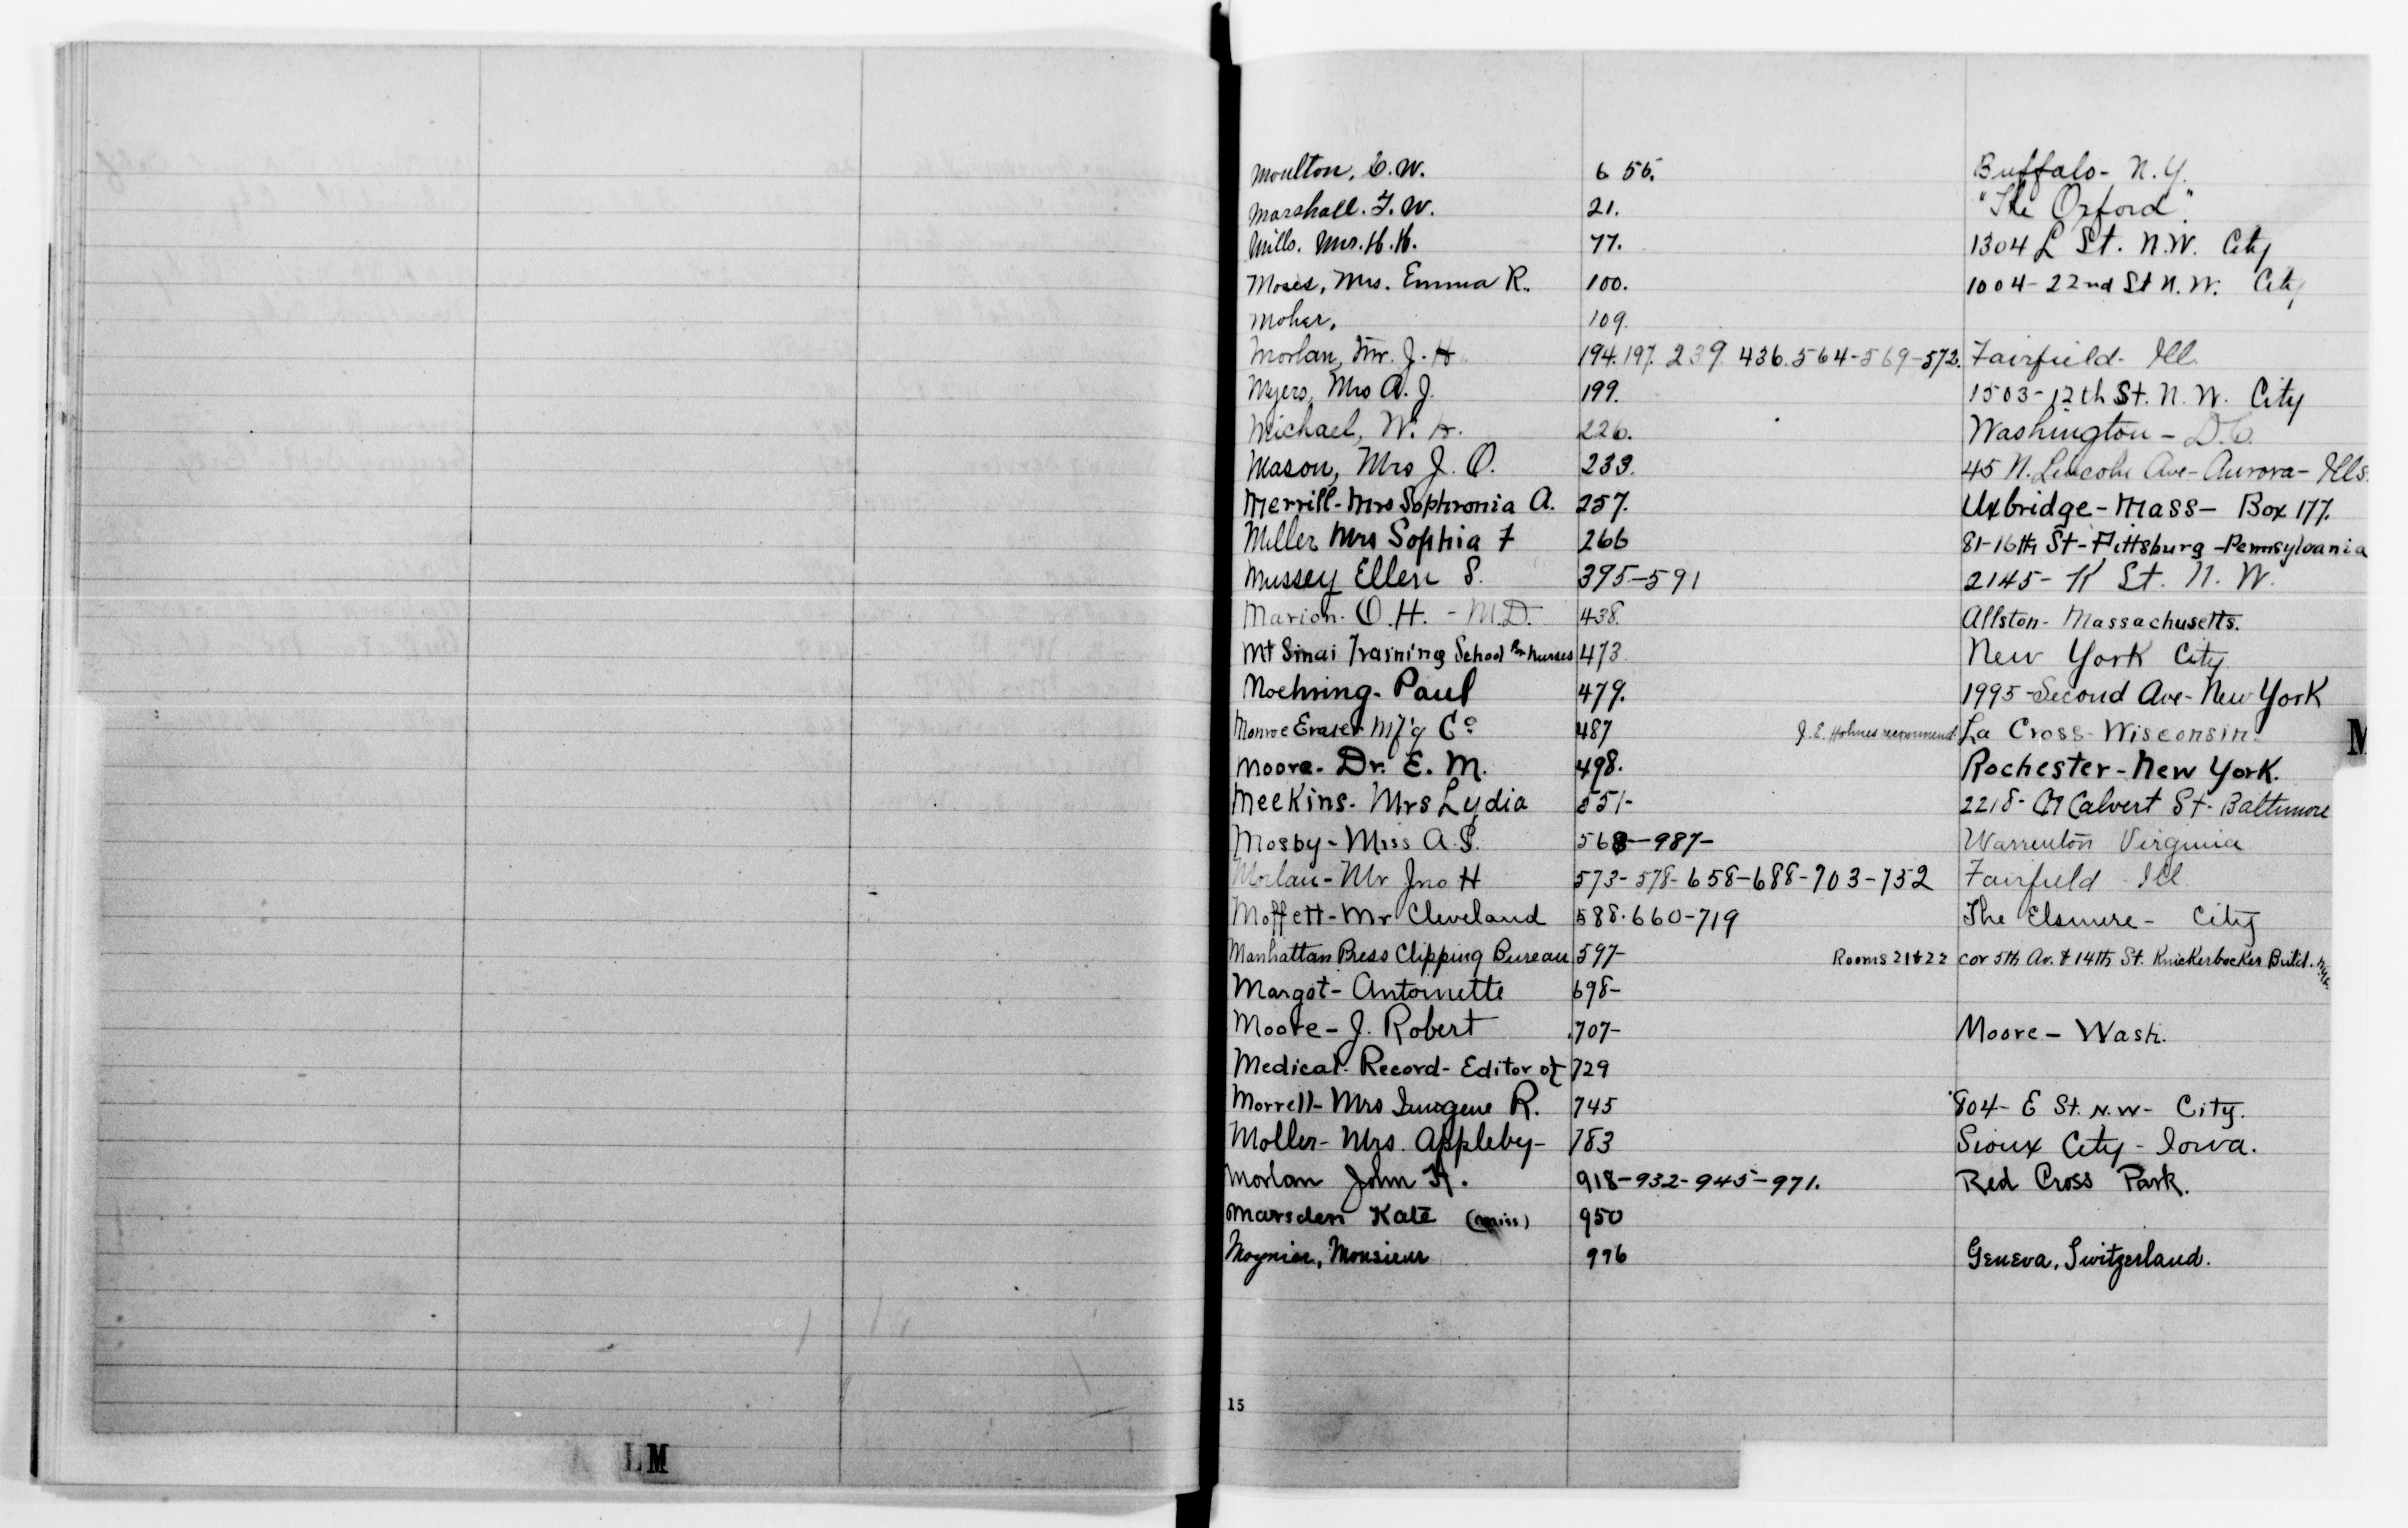 Moulton, C. W. 6 56. Buffalo - N. Y.
Marshall. F. W. 21. "The Oxford".
Mills. Mrs. H. H. 77. 1304 L St. N.W. City
Moses, Mrs. Emma R. 100. 1004 - 22nd St N. W. City
Moher, 109.
Morlan, Mr. J. H. 194. 197. 239. 436. 564 - 569 - 572. Fairfield - Ill.
Myers, Mrs A. J. 199. 1503 - 12th St. N. W. City
Michael, W. H. 226. Washington - D.C.
Mason, Mrs J. O. 233. 45 N. Lincoln Ave - Aurora - Ills.
Merrill - Mrs Sophronia A. 257. Uxbridge - Mass - Box 177.
Miller Mrs Sophia F 266 81 - 16th St - Pittsburg - Pennsylvania
Mussey Ellen S. 395 - 591 2145 - K St. N. W.
Marion - O. H. - M.D. 438. Allston - Massachusetts.
Mt Sinai Training School for Nurses 473 New York City
Moehring - Paul 479. 1995 - Second Ave - New York
Monroe Eraser Mf'g Co 487 J. E. Holmes recommend. La Cross - Wisconsin.
M
Moore - Dr. E. M. 498. Rochester - New York.
Meekins - Mrs Lydia 551 - 2218 - Calvert St - Baltimore
Mosby - Miss A. S. 568 - 987 - Warrenton Virginia
Morlan - Mr Jno H 573 - 578 - 658 - 688 - 703 - 752 Fairfield Ill.
Moffett - Mr Cleveland 588 - 660 - 719 The Elsmere - City
Manhattan Press Clipping Bureau 597 - Rooms 21 & 22 cor 5th Av. & 14th St. Knickerbocker Build. N.Y.C.
Margot - Antoinette 698 -
Moore - J. Robert 707 - Moore - Wash.
Medical - Record - Editor of 729
Morrell - Mrs Imogene R. 745 804 - E St. N.W - City.
Moller - Mrs. Appleby - 783 Sioux City - Iowa.
Morlan John H. 918 - 932 - 945 - 971. Red Cross Park.
Marsden Kate (Miss) 950
Moynier, Monsieur 976 Geneva, Switzerland.
15
LM